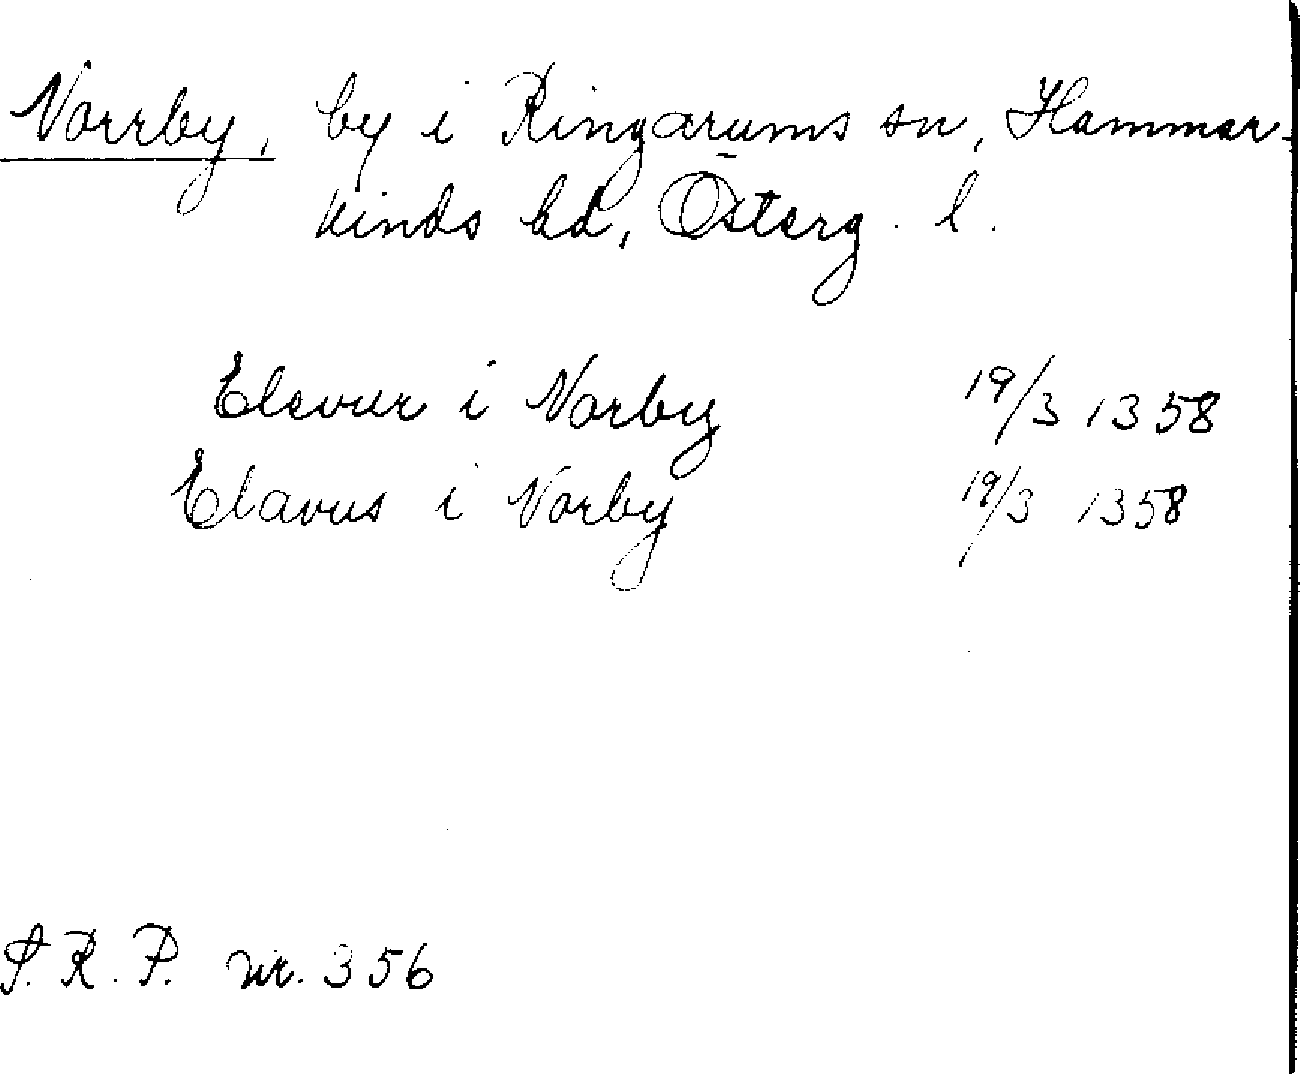 Norrby, by i Ringarums sn, Hammar-
kinds hd, Österg. l.
Elevur i Norby 19/3 1358
Elavus i Norby 19/3 1358
S.R.P. nr. 356